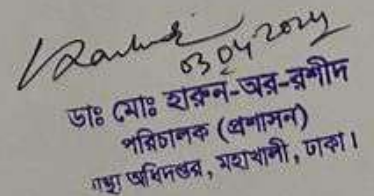 03 04 2024
ডাঃ মোঃ হারুন-অর-রশীদ
পরিচালক (প্রশাসন)
অধিদপ্তর, মহাখালী, ঢাকা।